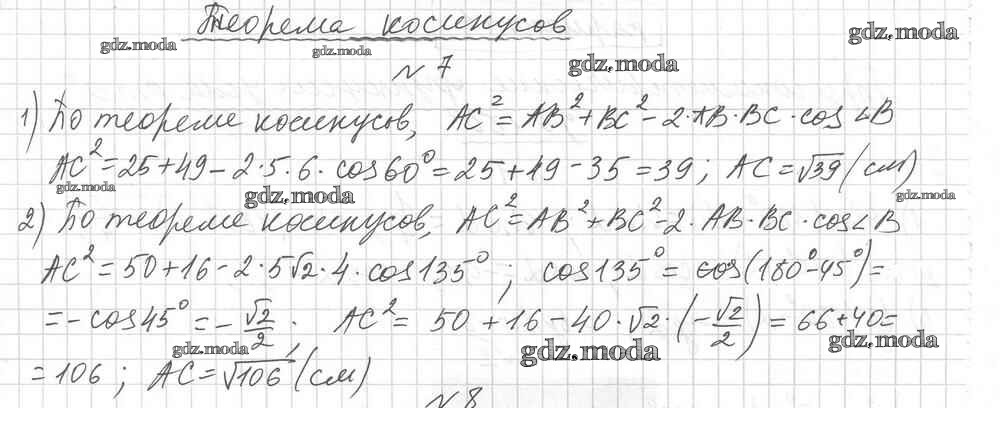 Теорема косинусов
gdz.moda gdz.moda gdz.moda
№ 7 gdz.moda
1) По теореме косинусов, AC² = AB² + BC² - 2·AB·BC·cos∠B
AC² = 25 + 49 - 2·5·6·cos60° = 25 + 49 - 35 = 39; AC = √39 (см)
gdz.moda gdz.moda gdz.moda
2) По теореме косинусов, AC² = AB² + BC² - 2·AB·BC·cos∠B
AC² = 50 + 16 - 2·5√2·4·cos135°; cos135° = cos(180° - 45°) =
= -cos45° = -√2/2. AC² = 50 + 16 - 40·√2·(-√2/2) = 66 + 40 =
gdz.moda gdz.moda gdz.moda
= 106; AC = √106 (см)
№ 8